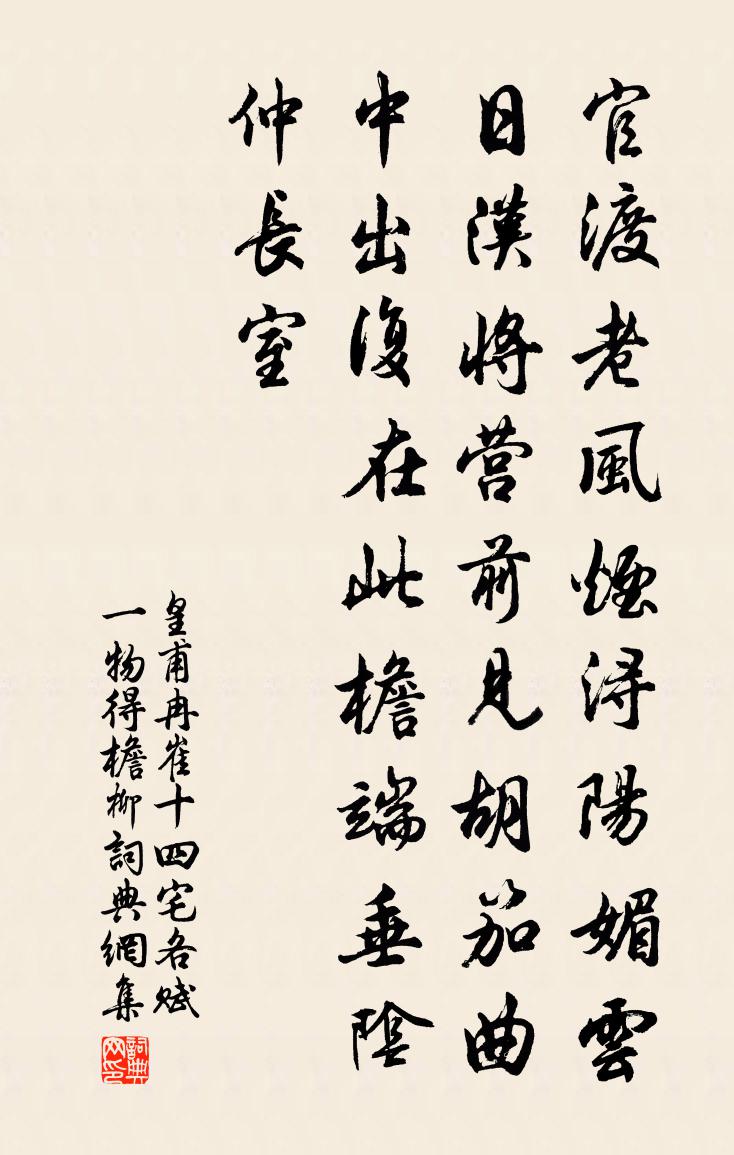 官渡老風煙潯陽媚雲
日漢將營前見胡笳曲
中出復在此檐端垂陰
仲長室
皇甫冉崔十四宅各賦
一物得檐柳詞典網集
詞典网印